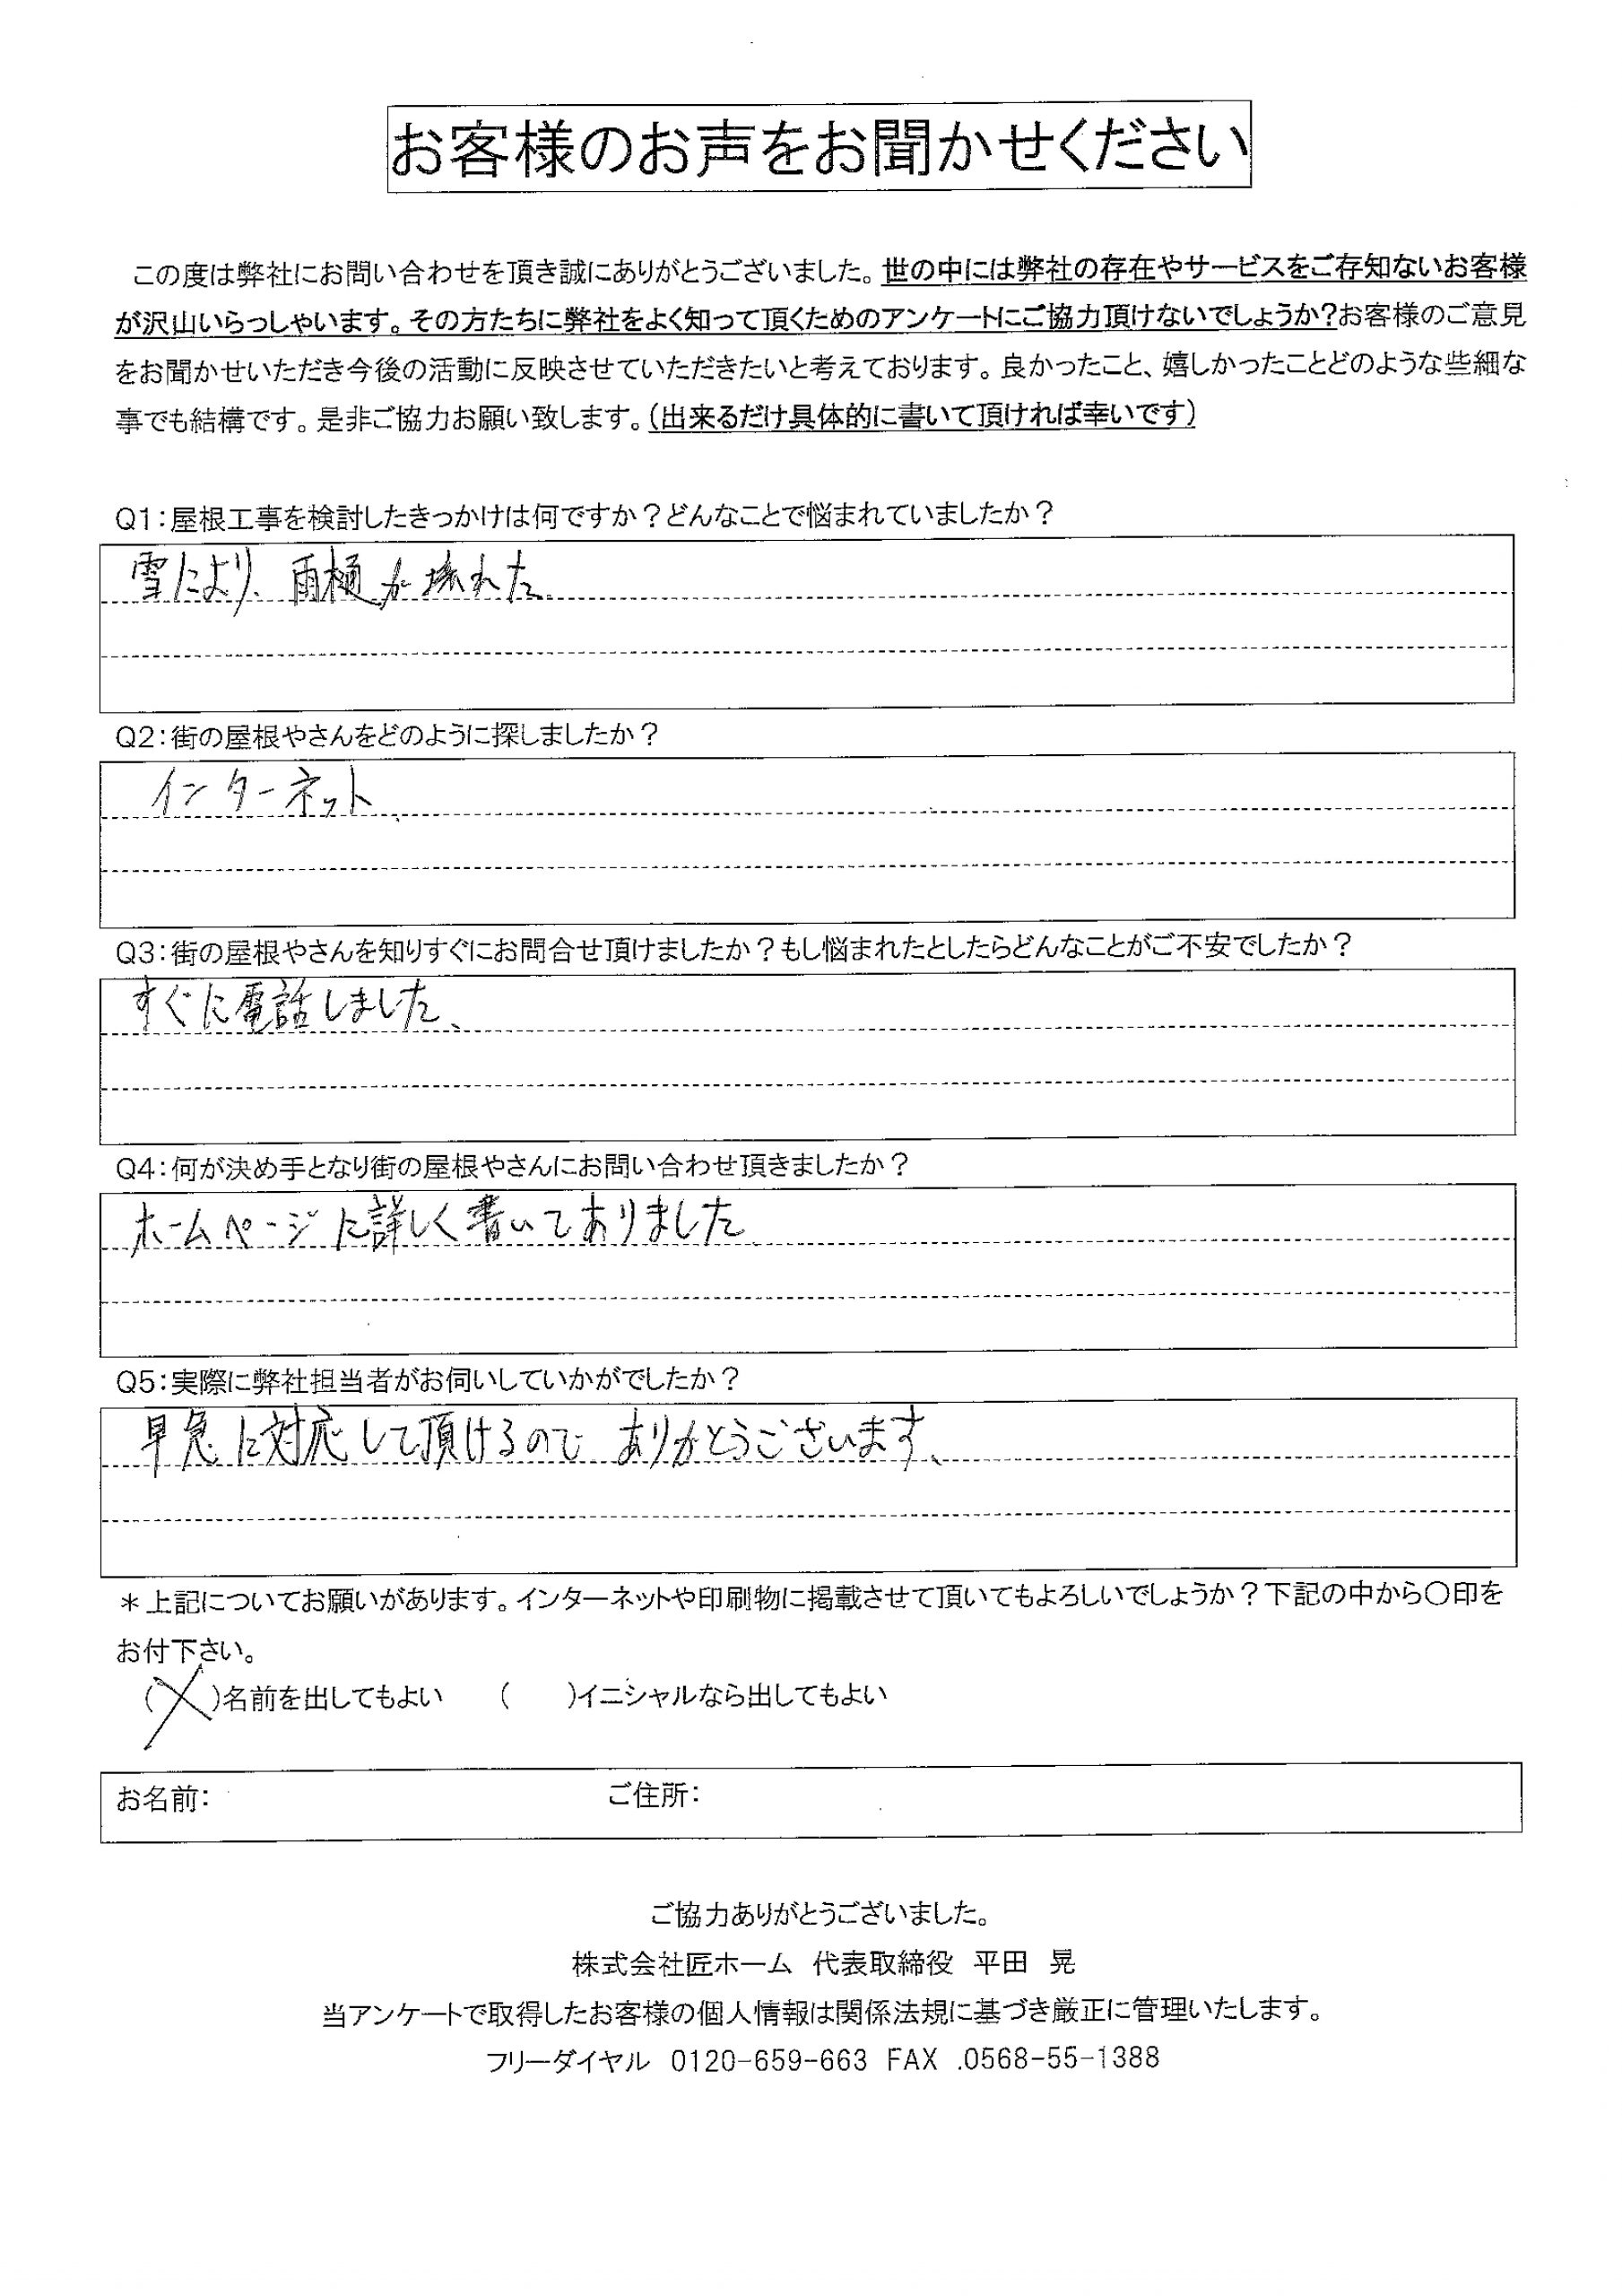 お客様のお声をお聞かせください
この度は弊社にお問い合わせを頂き誠にありがとうございました。世の中には弊社の存在やサービスをご存知ないお客様
が沢山いらっしゃいます。その方たちに弊社をよく知って頂くためのアンケートにご協力頂けないでしょうか?お客様のご意見
をお聞かせいただき今後の活動に反映させていただきたいと考えております。良かったこと、嬉しかったことどのような些細な
事でも結構です。是非ご協力お願い致します。(出来るだけ具体的に書いて頂ければ幸いです)
Q1:屋根工事を検討したきっかけは何ですか?どんなことで悩まれていましたか?
雪により、雨樋が壊れた
Q2:街の屋根やさんをどのように探しましたか?
インターネット
Q3:街の屋根やさんを知りすぐにお問合せ頂けましたか?もし悩まれたとしたらどんなことがご不安でしたか?
すぐに電話しました、
Q4:何が決め手となり街の屋根やさんにお問い合わせ頂きましたか?
ホームページに詳しく書いてありました
Q5:実際に弊社担当者がお伺いしていかがでしたか?
早急に対応して頂けるので ありがとうございます、
*上記についてお願いがあります。インターネットや印刷物に掲載させて頂いてもよろしいでしょうか?下記の中から〇印を
お付下さい。
(×)名前を出してもよい ( )イニシャルなら出してもよい
お名前: ご住所:
ご協力ありがとうございました。
株式会社匠ホーム 代表取締役 平田 晃
当アンケートで取得したお客様の個人情報は関係法規に基づき厳正に管理いたします。
フリーダイヤル 0120-659-663 FAX .0568-55-1388